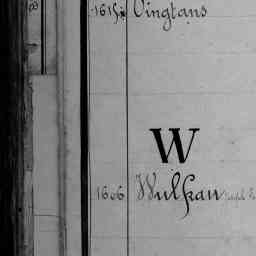 1615 Vingtans
W
1606 Wulfran